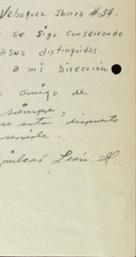 Velasquez Ibarra #34.
se siga conservando
asus distinguidos
a mi Dirección
amigo de
siempre
esta dispuesto
servirle.
León